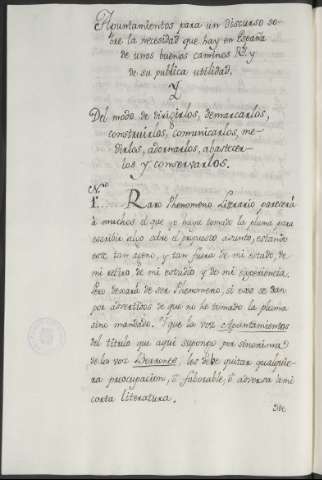 Apuntamientos para un Discurso so-
bre la necesidad que hay en España
de unos buenos caminos Rs. y
de su publica utilidad.
Y
Del modo de dirigirlos, demarcarlos,
construirlos, comunicarlos, me-
dirlos, adornarlos, abastecer-
los y conservarlos.
N.º
1. Raro Phenomeno Literario parecerá
à muchos, el que yo haya tomado la pluma para
escribir algo sobre el propuesto asunto, estando
este tan ageno, y tan fuera de mi estado, de
mi retiro, de mi estudio y de mi experiencia.
Pero dexará de ser Phenomeno, si eso se dan
por advertidos de que no he tomado la pluma
sino mandado. Y que la voz Apuntamientos
del titulo que aqui supone por sinonima
de la voz Borrones, les debe quitar qualquie-
ra preocupacion, ò favorable, ò adversa de mi
corta literatura.